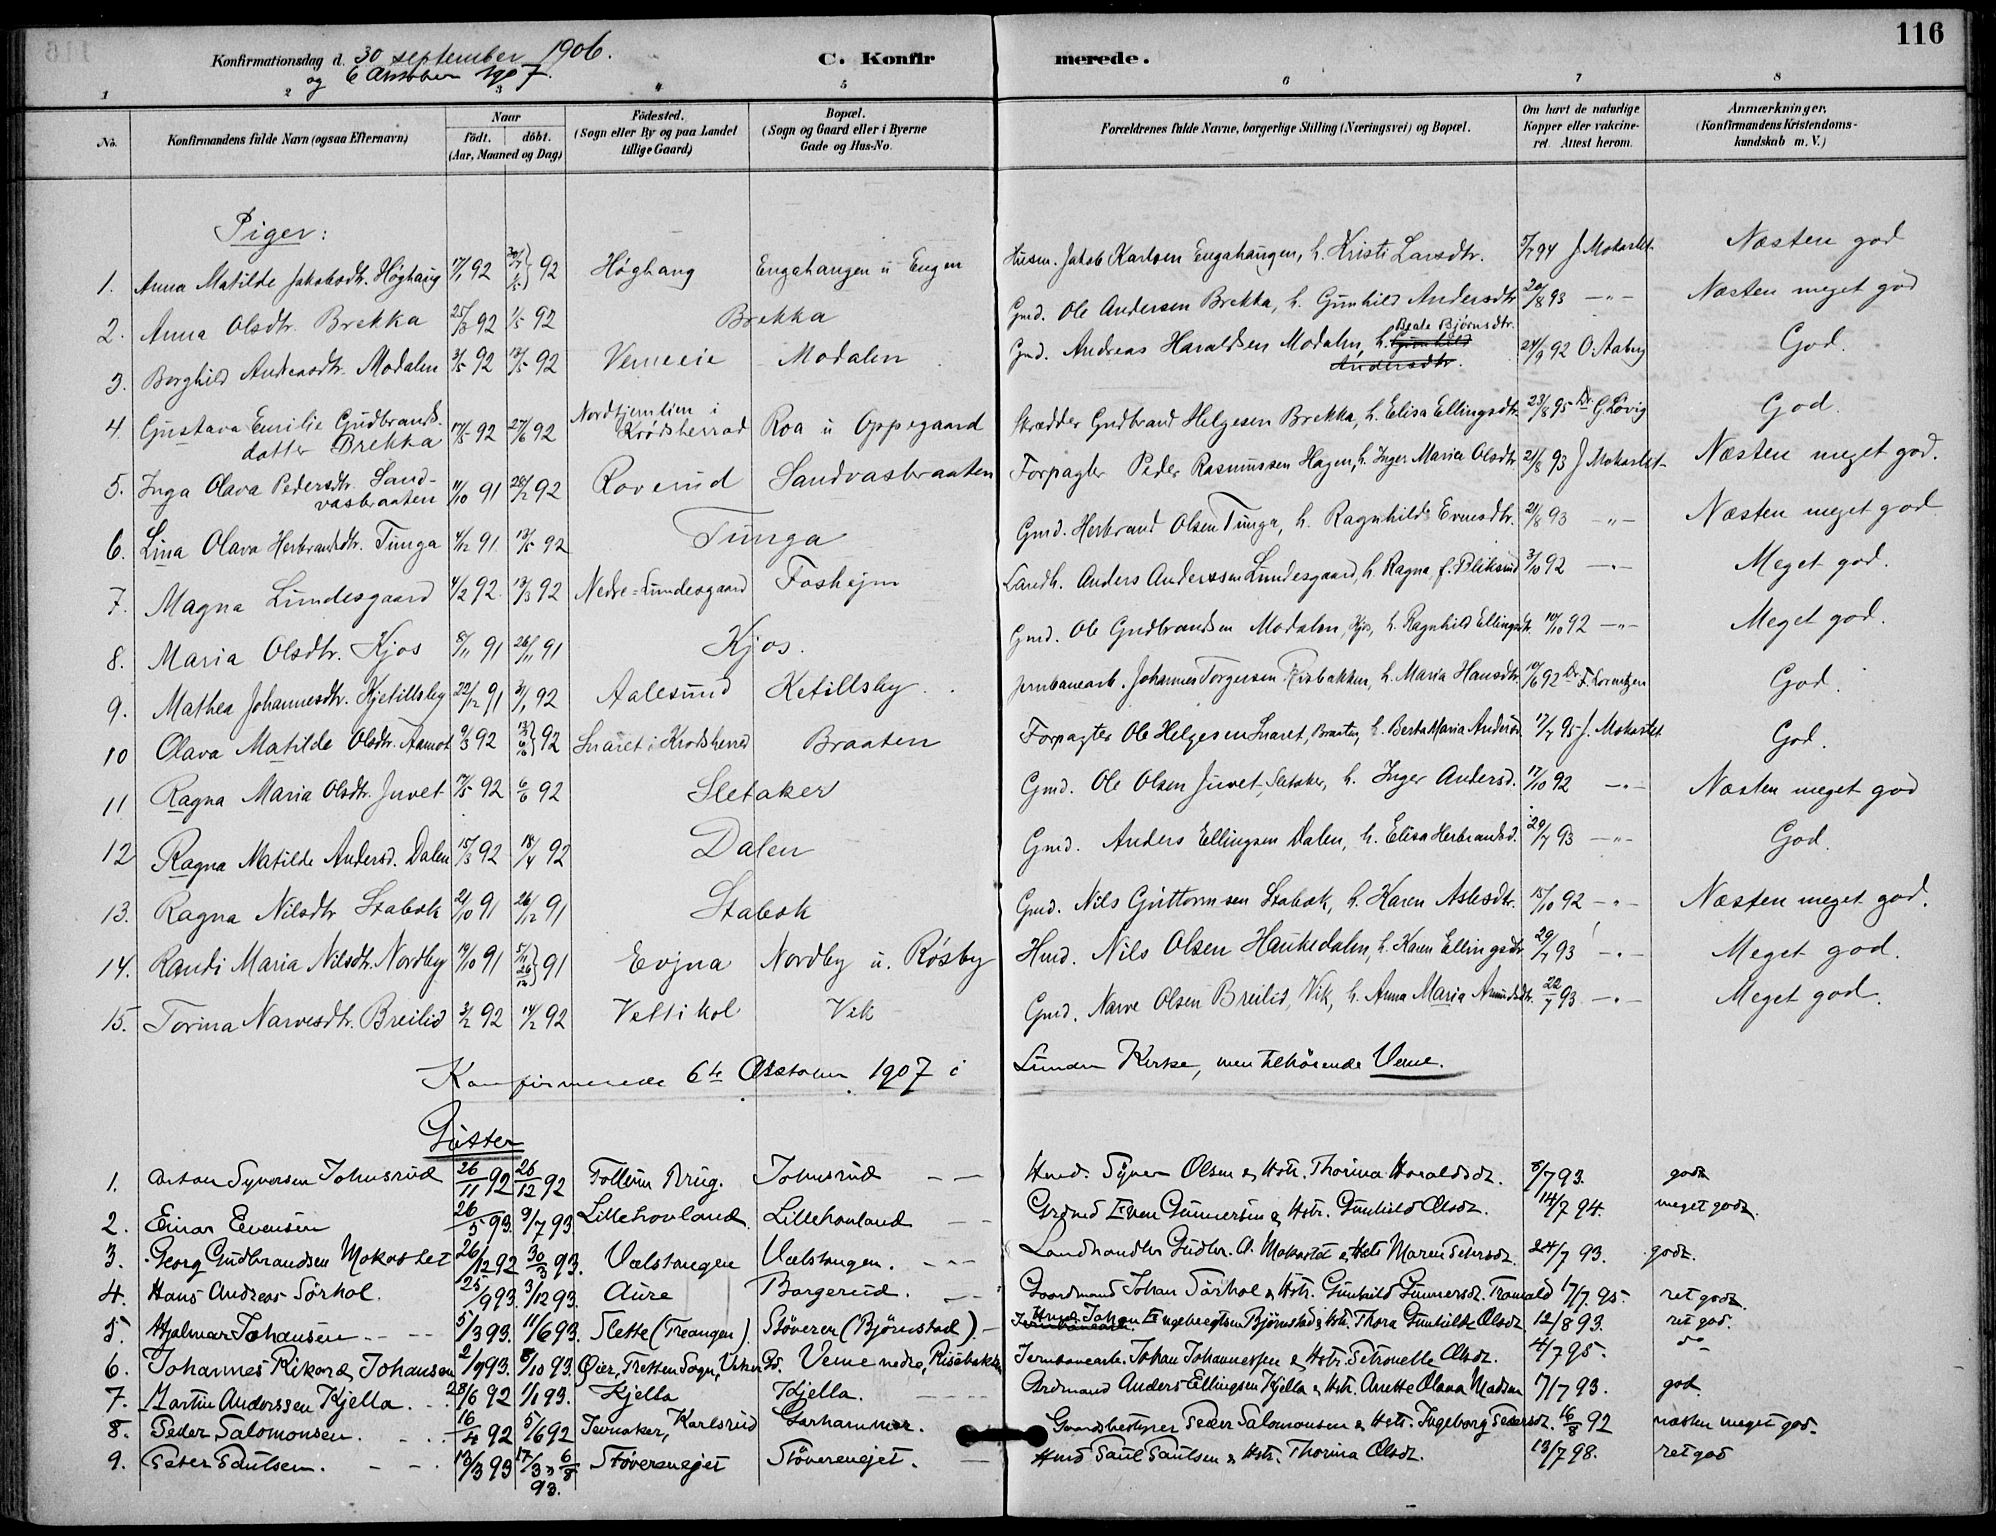 116
Konfirmationsdag d. 30 september 1906.
og 6 October 1907.
C. Konfirmerede.
1 2 3 4 5 6 7 8
No. Konfirmandens fulde Navn (ogsaa Efternavn) Naar födt. döbt. (Aar, Maaned og Dag) Födested. (Sogn eller By og paa Landet tillige Gaard) Bopæl. (Sogn og Gaard eller i Byerne Gade og Hus-No. Forældrenes fulde Navne, borgerlige Stilling (Næringsvei) og Bopæl. Om havt de naturlige Kopper eller vakcineret. Attest herom. Anmærkninger. (Konfirmandens Kristendomskundskab m. V.)
Piger:
1. Anna Matilde Jakobsdtr. Høghaug 17/1 92 92 Høghaug Engahaugen u Engen Husm. Jakob Karlsen Engahaugen, h. Kristi Larsdtr. 5/7 94 J Mokastet Næsten god
2. Anna Olsdtr. Brekka 25/3 92 1/5 92 Brekka Gmd. Ole Andersen Brekka, h. Gunhild Andersdtr 20/8 93 -"- Næsten meget god
3. Borghild Andreasdtr. Modalen 3/5 92 92 Vemeeie Modalen Gmd. Andreas Haraldsen Modalen, h. Gunhild Andersdtr. Beate Bjørnsdtr. 24/9 92 O. Aaberg God.
4. Gustava Emilie Gudbrandsdatter Brekka 92 27/6 92 Nordtjernlien i Krødsherrad Roa u Oppegaard Skrædder Gudbrand Helgesen Brekka, h. Elisa Ellingsdtr. 23/8 95 Dr. G Løvig God.
5. Inga Olava Pedersdtr. Sandvasbraaten 11/10 91 28/2 92 Roverud Sandvasbraaten Forpagter Peder Rasmussen Hagen, h. Inger Marie Olsdtr 21/8 93 J Mokastet Næsten meget god.
6. Lina Olava Herbrandsdtr. Tunga 4/12 91 13/5 92 Tunga Gmd. Herbrand Olsen Tunga, h. Ragnhild Evensdtr. 21/8 93 -"- Næsten meget god
7. Magna Lundesgaard 4/2 92 13/3 92 Nedre=Lundesgaard Fosheim Landh. Anders Anderssen Lundesgaard, h. Ragna f. Bliksrud 3/10 92 -"- Meget god.
8. Maria Olsdtr. Kjos 8/11 91 26/11 91 Kjos. Gmd. Ole Gudbrandsen Modalen, Kjos, h. Ragnhild Ellingsdtr. 10/10 92 -"- Meget god.
9. Mathea Johannesdtr. Kjetillsby 22/12 91 3/1 92 Aalesund Ketillsby Jernbanearb. Johannes Torgersen Risbakken, h. Maria Hansdtr. 10/6 92 Dr. F. Lorentzen God.
10 Olava Matilde Olsdtr. Aamot 9/3 92 92 Snaret i Krødsherred Braaten Forpagter Ole Helgesen Snaret, Braaten, h. Berta Maria Andersdr. 17/7 95 J. Mokastet God.
11 Ragna Maria Olsdtr. Juvet 92 6/6 92 Sletaker Gmd. Ole Olsen Juvet, Sletaker, h. Inger Andersd. 17/10 92 -"- Næsten meget god
12 Ragna Matilde Andersd. Dalen 15/3 92 18/4 92 Dalen Gmd. Anders Ellingsen Dalen, h. Elisa Herbrandsd. 20/7 93 -"- God.
13. Ragna Nilsdtr Stabæk 21/10 91 26/12 91 Stabæk Gmd. Nils Guttormsen Stabæk, h. Karen Aslesdtr. 15/10 92 -"- Næsten meget god.
14. Randi Maria Nilsdtr. Nordby 19/10 91 5/11 26/12 91 Evjua Nordby u. Røsby Hmd. Nils Olsen Haukedalen, h. Karen Ellingsdtr 20/7 93 -"- Meget god.
15. Torina Narvesdtr. Breilid 3/2 92 14/2 92 Veltikol Vik Gmd. Narve Olsen Breilid, Vik, h. Anna Maria Amundsdtr. 22/7 93 -"- Meget god.
Konfirmerede 6te October 1907 i Lunder Kirke, men tilhörende Veme.
Gutter
1. Anton Syversen Johnsrud 26/11 92 26/12 92 Follum Brug. Johnsrud -- Hmd. Syver Olsen & Hstr. Thorina Haraldsdt. 8/7 93. godt
2. Einar Evensen 26/5 93. 9/7 93 Lillehovland Lillehovland -- Grdmd Even Gunnersen & Hstr. Gunhild Olsdt. 14/7 94. meget godt.
3. Georg Gudbrandsen Mokastet 26/12 92 30/3 93. Vælstangen Vælstangen. --- Landhandler Gudbr. A. Mokastet & Hstr Maren Petersdt. 24/7 93. godt.
4. Hans Andreas Sörhol. 25/9 93. 3/12 93. Aure Borgerud. Gaardmand Johan Sörhol & Hstr. Gunhild Gunnersdt. Tromald 17/7 95. ret godt.
5. Hjalmar Johansen 5/3 93. 11/6 93. Slette (Treangen). Stöveren (Björnstad). Jernbanearb. Hmd. Johan Engebregtsen Björnstad & Hstr. Thora Gunhilda Olsdt 12/8 93. ret god.
6. Johannes Rikard Johansen 2/7 93. 8/10 93. Öier, Tretten Sogn, Vem nedre, Risebakken Jernbanearb. Johan Johannessen & Hstr. Petronelle Olsdt. 4/7 95. do
7. Martin Anderssen Kjella. 28/6 92 1/1 93. Kjella Kjella. Grdmand Anders Ellingsen Kjella & Hstr. Anette Olava Madsen 17/7 93. god.
8. Peder Salomonsen. 16/4 92 5/6 92 Jevnaker, Karlsrud Garhammar. Gaardsbestyrer Peder Salomonsen & Hstr. Ingeborg Pedersdt. 16/8 92 næsten meget god.
9. Peter Paulsen. 13/3 93 17/3 & 6/8 93. Stöverenejet Stöverenejet. Hmd Paul Paulsen & Hstr. Thorina Olsdt. 13/7 98. ret god